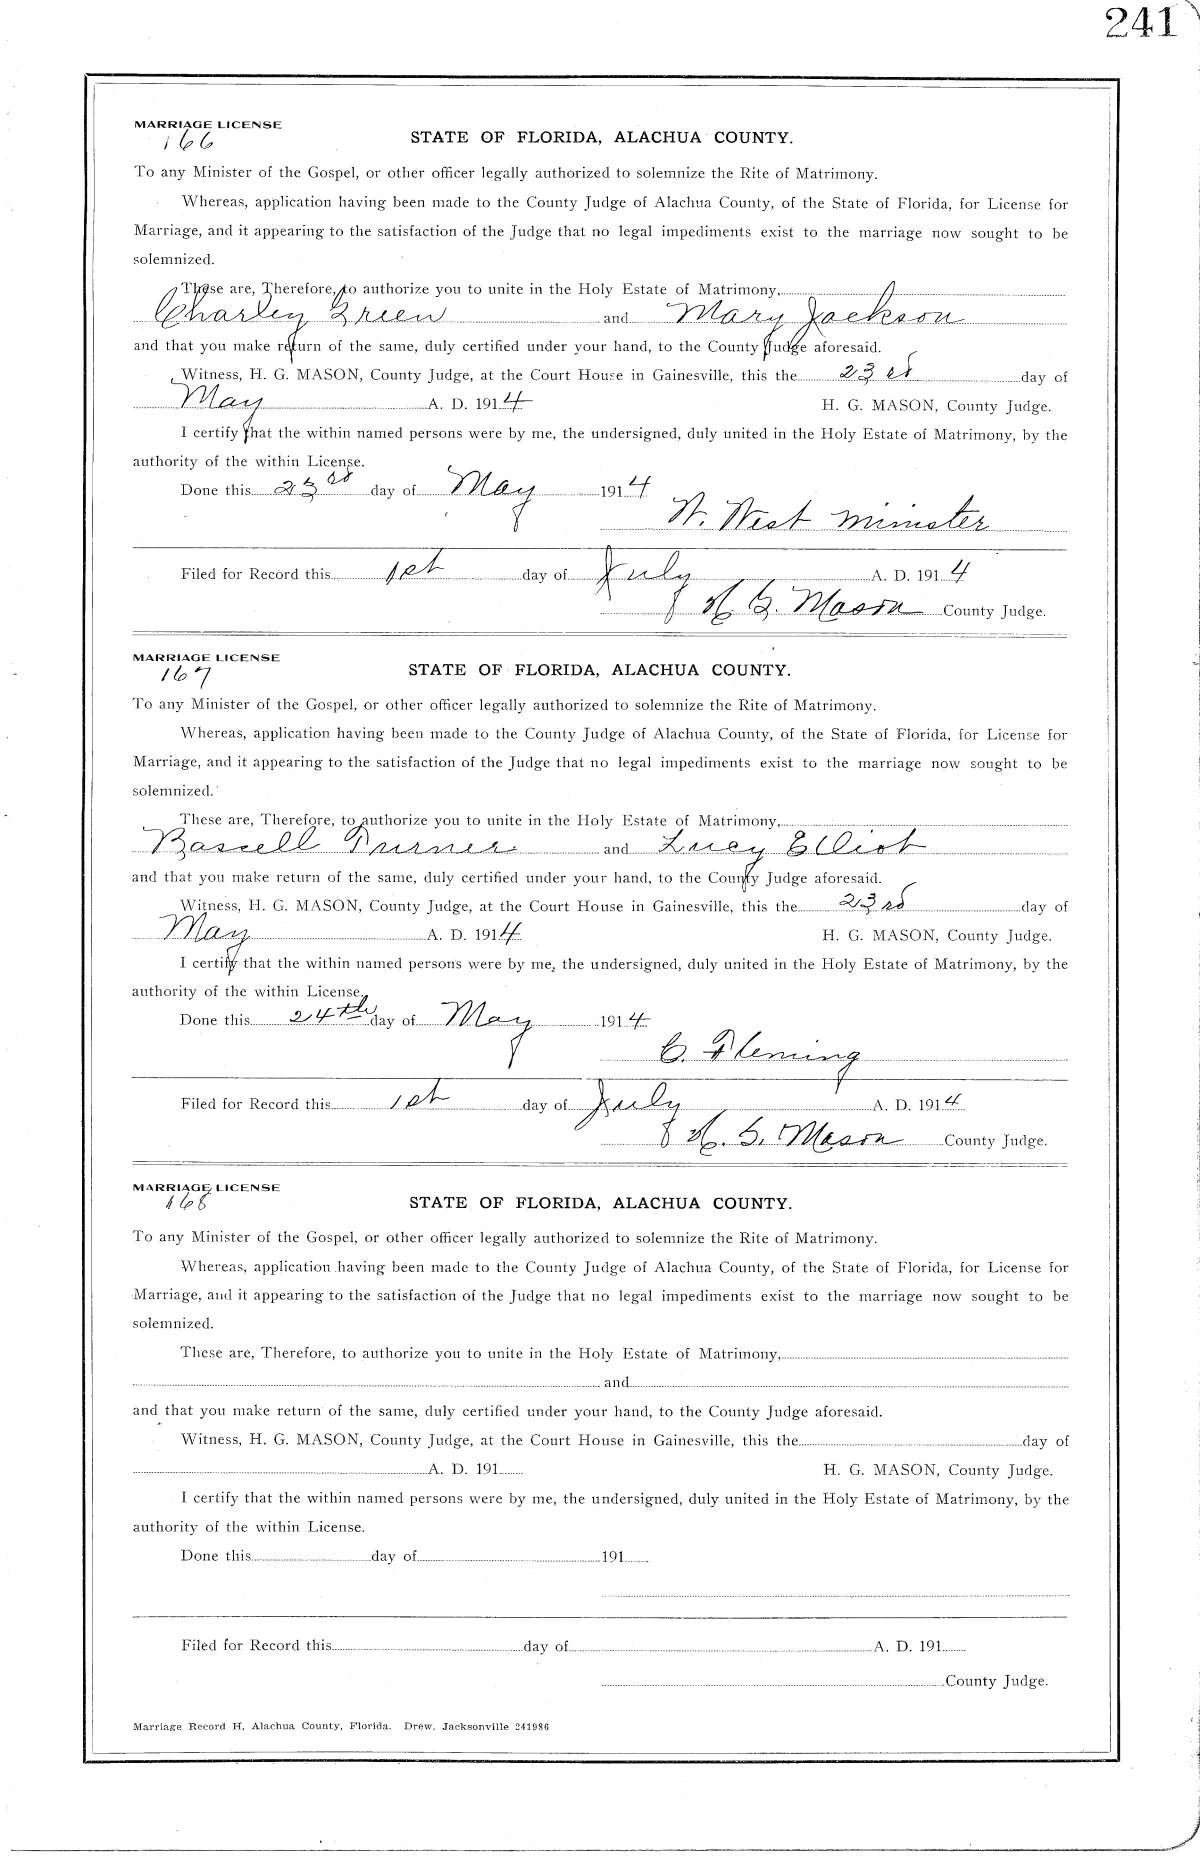 241
MARRIAGE LICENSE
166
STATE OF FLORIDA, ALACHUA COUNTY.
To any Minister of the Gospel, or other officer legally authorized to solemnize the Rite of Matrimony.
Whereas, application having been made to the County Judge of Alachua County, of the State of Florida, for License for
Marriage, and it appearing to the satisfaction of the Judge that no legal impediments exist to the marriage now sought to be
solemnized.
These are, Therefore, to authorize you to unite in the Holy Estate of Matrimony,
Charley Green and Mary Jackson
and that you make return of the same, duly certified under your hand, to the County Judge aforesaid.
Witness, H. G. MASON, County Judge, at the Court House in Gainesville, this the 23rd day of
May A. D. 1914 H. G. MASON, County Judge.
I certify that the within named persons were by me, the undersigned, duly united in the Holy Estate of Matrimony, by the
authority of the within License.
Done this 23rd day of May 1914
W. West minister
Filed for Record this 1st day of July A. D. 1914
H. G. Mason County Judge.
MARRIAGE LICENSE
167
STATE OF FLORIDA, ALACHUA COUNTY.
To any Minister of the Gospel, or other officer legally authorized to solemnize the Rite of Matrimony.
Whereas, application having been made to the County Judge of Alachua County, of the State of Florida, for License for
Marriage, and it appearing to the satisfaction of the Judge that no legal impediments exist to the marriage now sought to be
solemnized.
These are, Therefore, to authorize you to unite in the Holy Estate of Matrimony,
Bascell Turner and Lucy Elliot
and that you make return of the same, duly certified under your hand, to the County Judge aforesaid.
Witness, H. G. MASON, County Judge, at the Court House in Gainesville, this the 23rd day of
May A. D. 1914 H. G. MASON, County Judge.
I certify that the within named persons were by me, the undersigned, duly united in the Holy Estate of Matrimony, by the
authority of the within License.
Done this 24th day of May 1914
C. Fleming
Filed for Record this 1st day of July A. D. 1914
H. G. Mason County Judge.
MARRIAGE LICENSE
168
STATE OF FLORIDA, ALACHUA COUNTY.
To any Minister of the Gospel, or other officer legally authorized to solemnize the Rite of Matrimony.
Whereas, application having been made to the County Judge of Alachua County, of the State of Florida, for License for
Marriage, and it appearing to the satisfaction of the Judge that no legal impediments exist to the marriage now sought to be
solemnized.
These are, Therefore, to authorize you to unite in the Holy Estate of Matrimony,
and
and that you make return of the same, duly certified under your hand, to the County Judge aforesaid.
Witness, H. G. MASON, County Judge, at the Court House in Gainesville, this the day of
A. D. 191 H. G. MASON, County Judge.
I certify that the within named persons were by me, the undersigned, duly united in the Holy Estate of Matrimony, by the
authority of the within License.
Done this day of 191
Filed for Record this day of A. D. 191
County Judge.
Marriage Record H, Alachua County, Florida. Drew, Jacksonville 241986